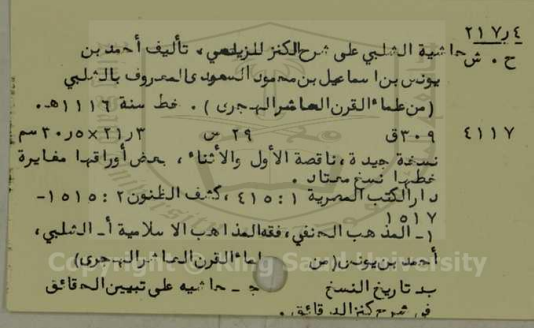 ٢١٧ر٤
ح . ش حاشية الشلبي على شرح الكنز للزيلعي، تأليف أحمد بن
يونس بن اسماعيل بن محمود السعودي المعروف بالشلبي
(من علماء القرن العاشر الهجرى) . خط سنة ١١١٦هـ.
٤١١٧ ٣٠٩ق ٢٩ س ٣ر٢١×٥ر٢٠سم
نسخة جيدة، ناقصة الأول والأثناء، بعض أوراقها مغايرة
خطها نسخ معتاد .
دار الكتب المصرية ١ : ٤١٥ ،كشف الظنون ٢ : ١٥١٥-
١٥١٧
١- المذهب الحنفي، فقه المذاهب الاسلامية أ- الشلبي،
أحمد بن يونس (من علماء القرن العاشر الهجرى)
ب- تاريخ النسخ ج - حاشيه على تبيين الحقائق
في شرح كنز الدقائق .
Copyright © King Saud University